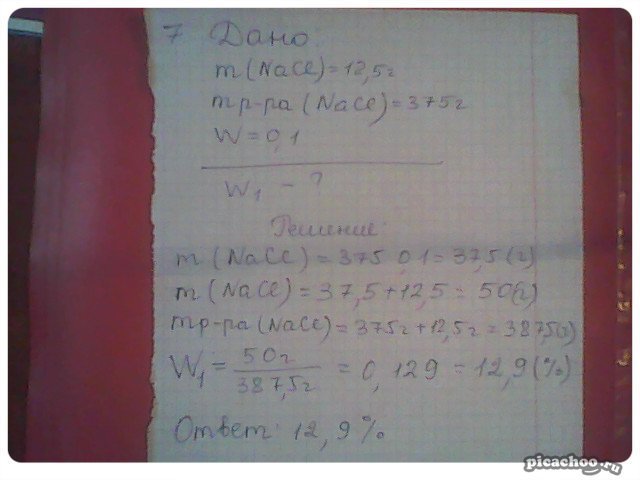 7 Дано
m(NaCl)=12,5г
mр-ра(NaCl)=375г
W=0,1
W₁ - ?
Решение:
m(NaCl)=375 0,1=37,5(г)
m(NaCl)=37,5+12,5=50(г)
mр-ра(NaCl)=375г+12,5г=387,5(г)
W₁ = 50г/387,5г = 0,129 = 12,9(%)
Ответ: 12,9%
picachoo.ru